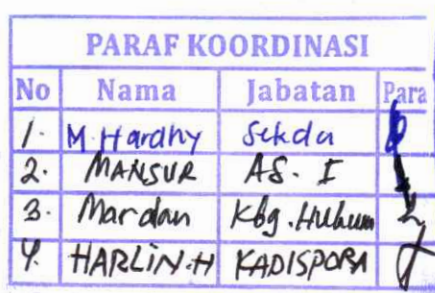 PARAF KOORDINASI
No Nama Jabatan Para
1. M. Hardhy Sekda
2. MANSUR AS. I
3. Mardan Kbg. Hukum
4. HARLIN.H KADISPORA